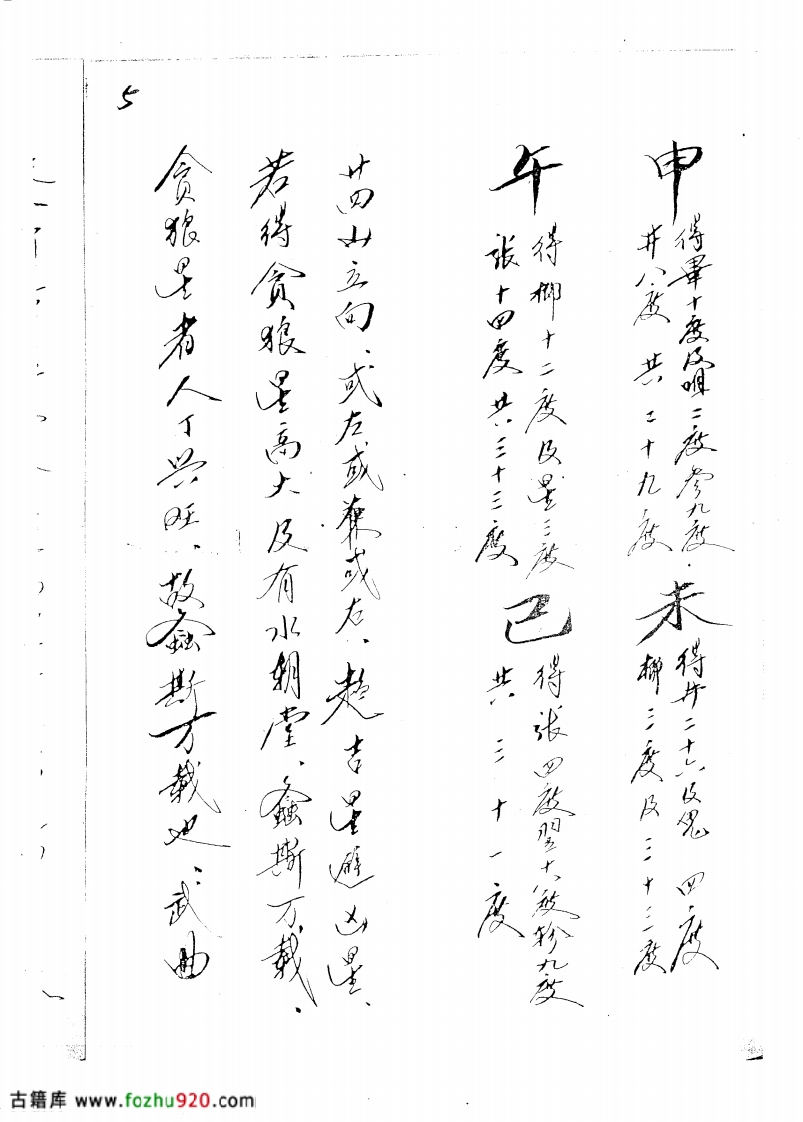 申 得畢十度及咀二度参九度.
井八度 共二十九度
未 得井二十六及鬼四度
柳三度及三十三度
午 得柳十二度及星三度
張十四度 共三十三度
巳 得張四度翌十八度轸九度
共三十一度
廿四山立向、或左或兼或右、趋吉星避凶星、
若得贪狼星高大及有水朝堂、螽斯万载、
贪狼星者人丁兴旺、故螽斯万载也、武曲
5
古籍库 www.fozhu920.com